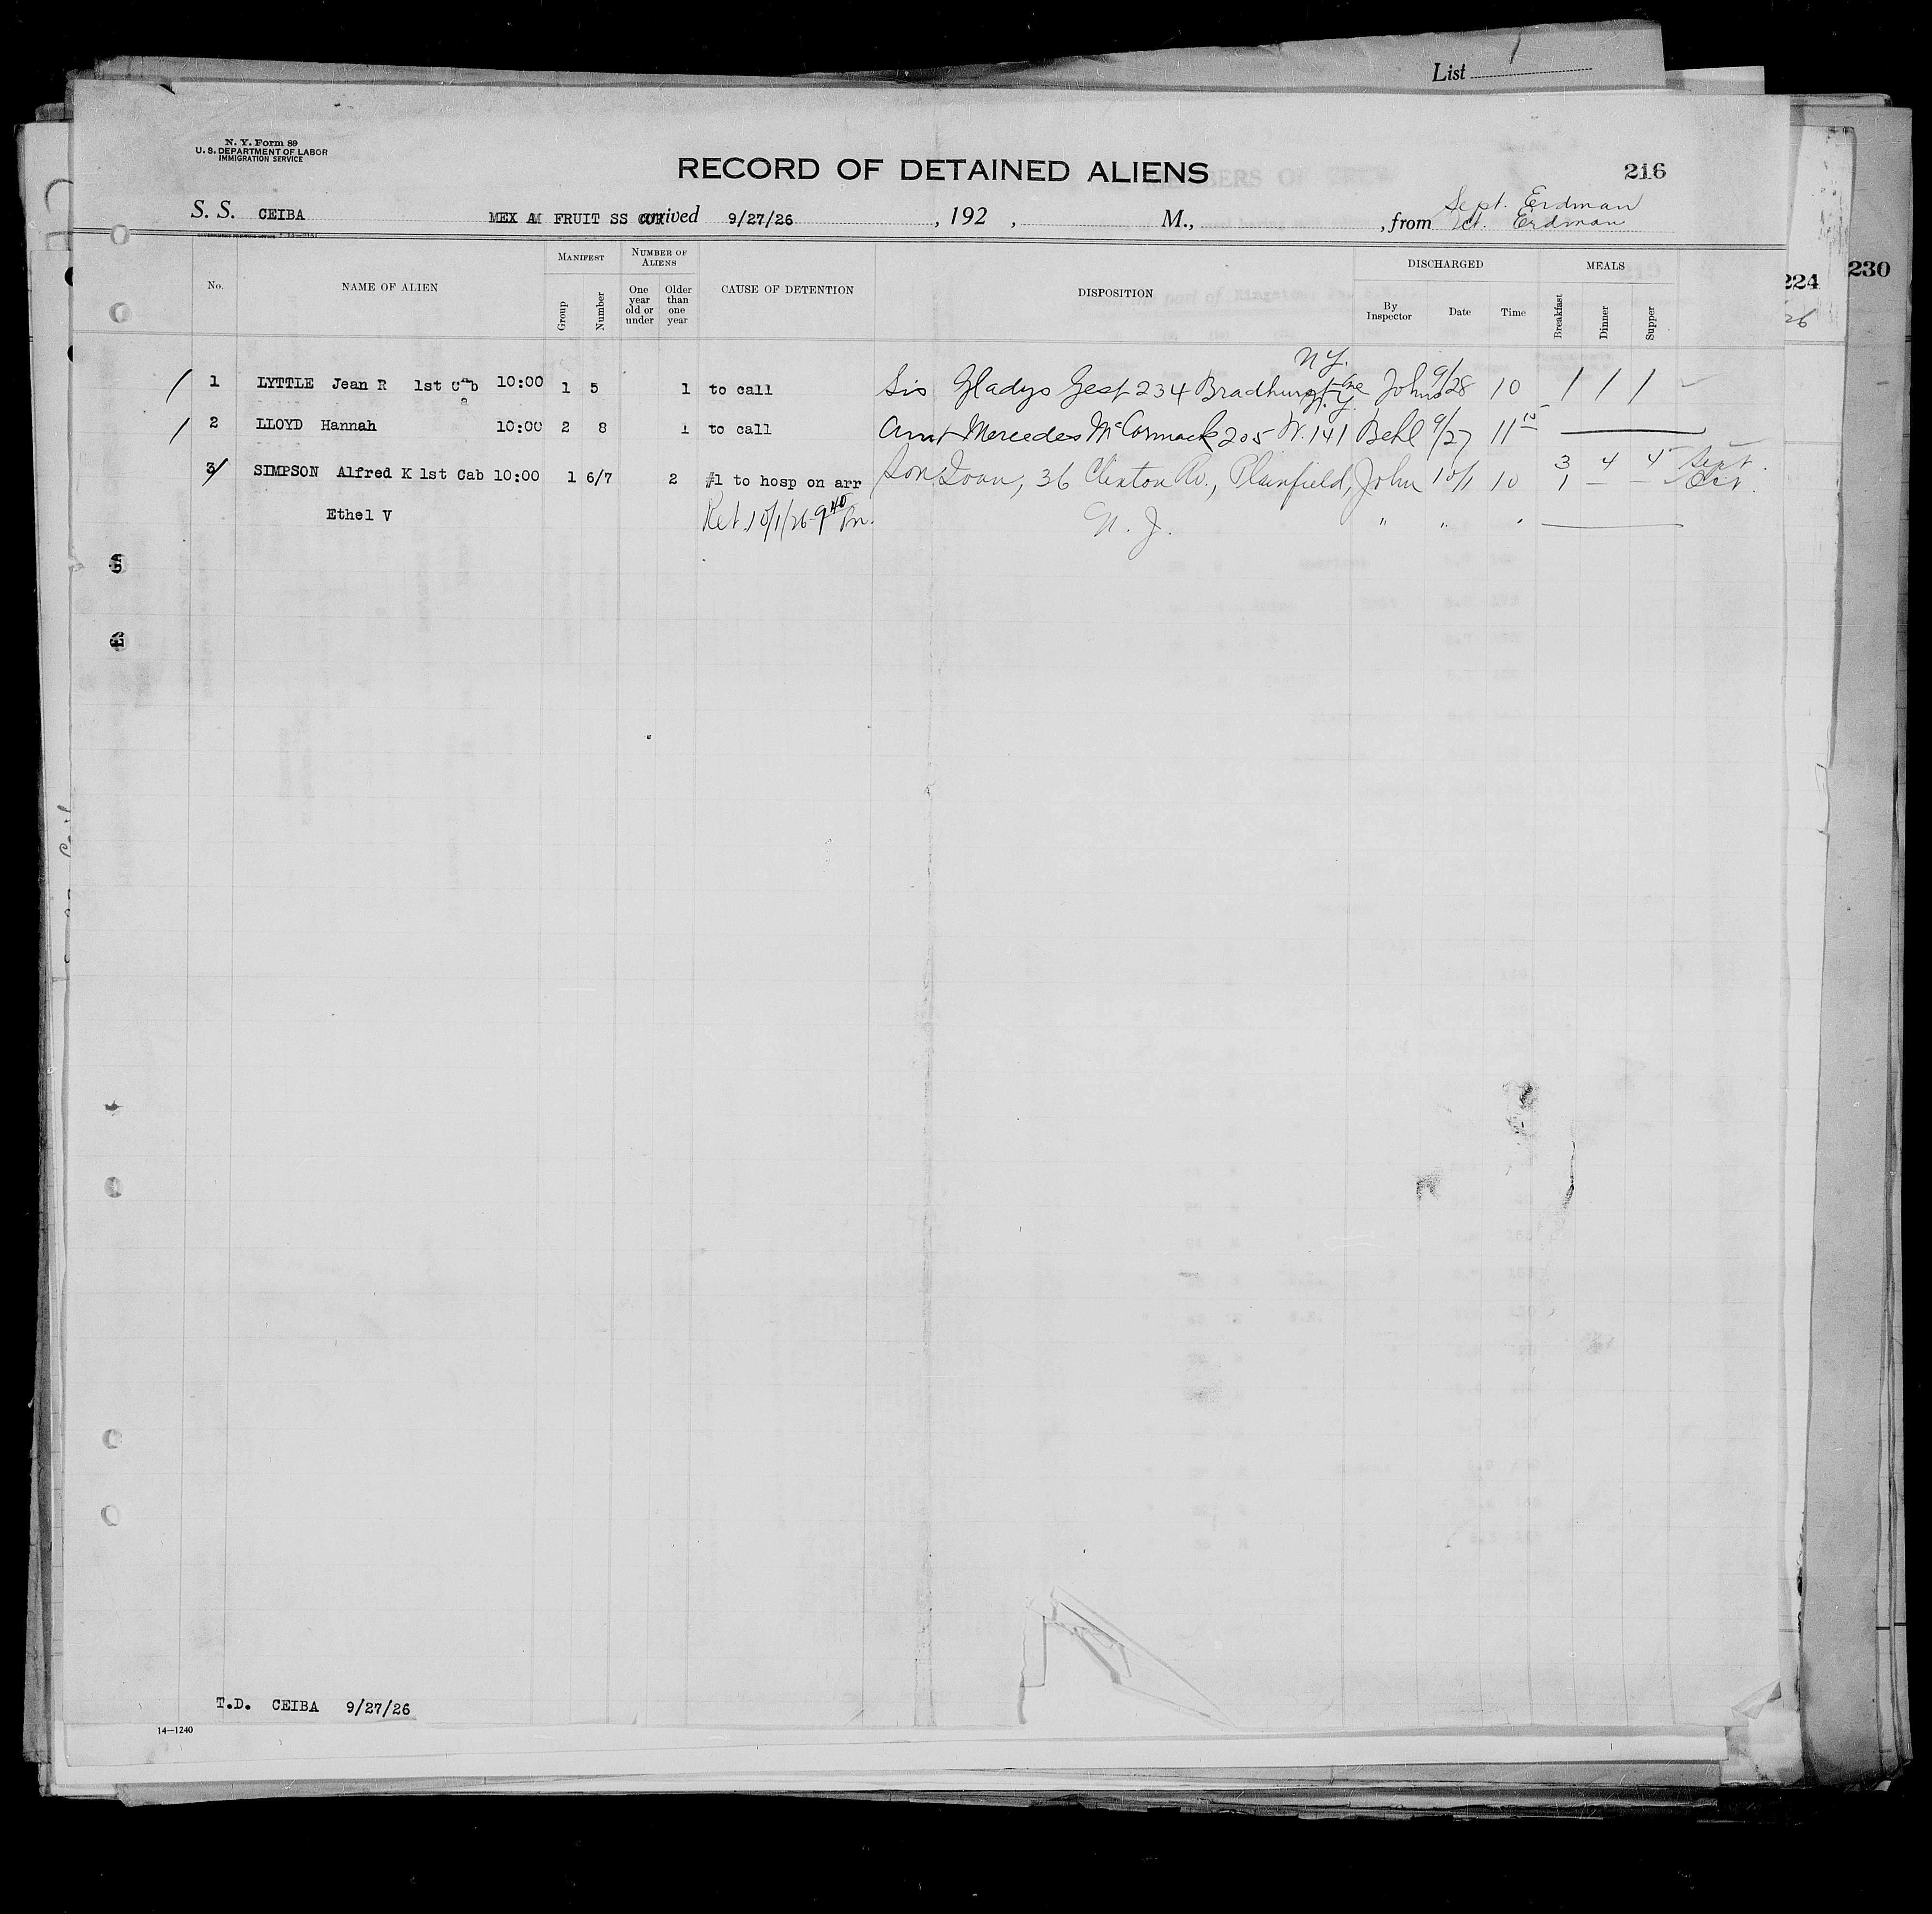 List 1
N. Y. Form 89
U. S. DEPARTMENT OF LABOR
IMMIGRATION SERVICE
RECORD OF DETAINED ALIENS
216
S. S. CEIBA MEX AM FRUIT SS arrived 9/27/26, 192 , M., , from Sept. Erdman
Oct. Erdman
224
230
26
No.
NAME OF ALIEN
MANIFEST
Group
Number
NUMBER OF ALIENS
One year old or under
Older than one year
CAUSE OF DETENTION
DISPOSITION
DISCHARGED
By Inspector
Date
Time
MEALS
Breakfast
Dinner
Supper
N.Y.
1 LYTTLE Jean R 1st Cab 10:00 1 5 1 to call Sis Gladys Gest 234 Bradhurst Ave Johns 9/28 10 1 1 1
N.Y.
2 LLOYD Hannah 10:00 2 8 1 to call Aunt Mercedes McCormack 205 W. 141 Behl 9/27 11 15
3 SIMPSON Alfred K 1st Cab 10:00 1 6/7 2 #1 to hosp on arr Son Ivan, 36 Clinton Av., Plainfield, John 10/1 10 3 4 4 Sept.
1 — — Oct.
Ethel V Ret. 10/1/26 9 40 Am. N. J. " " "
T.D. CEIBA 9/27/26
14—1240